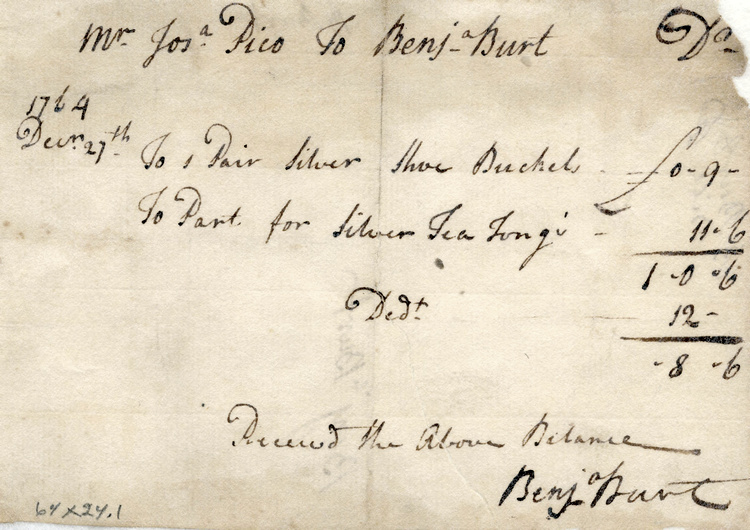 Mr Josa Pico To Benja Burt Dr
1764
Decr 27th To 1 Pair Silver Shoe Buckels - £0-9-
To Part for Silver Tea Tongs - 11-6
1-0-6
Dedt 12-
-8-6
Received the Above Balance
Benja Burt
64x24.1